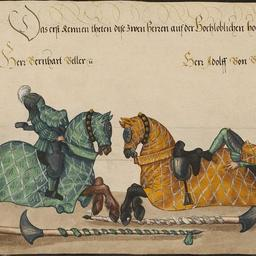 Das erst Rennen theten dise zwen herren auf der Hochloblichen ho
Herr Bernhart Beller :c
Herr Adolff Von B